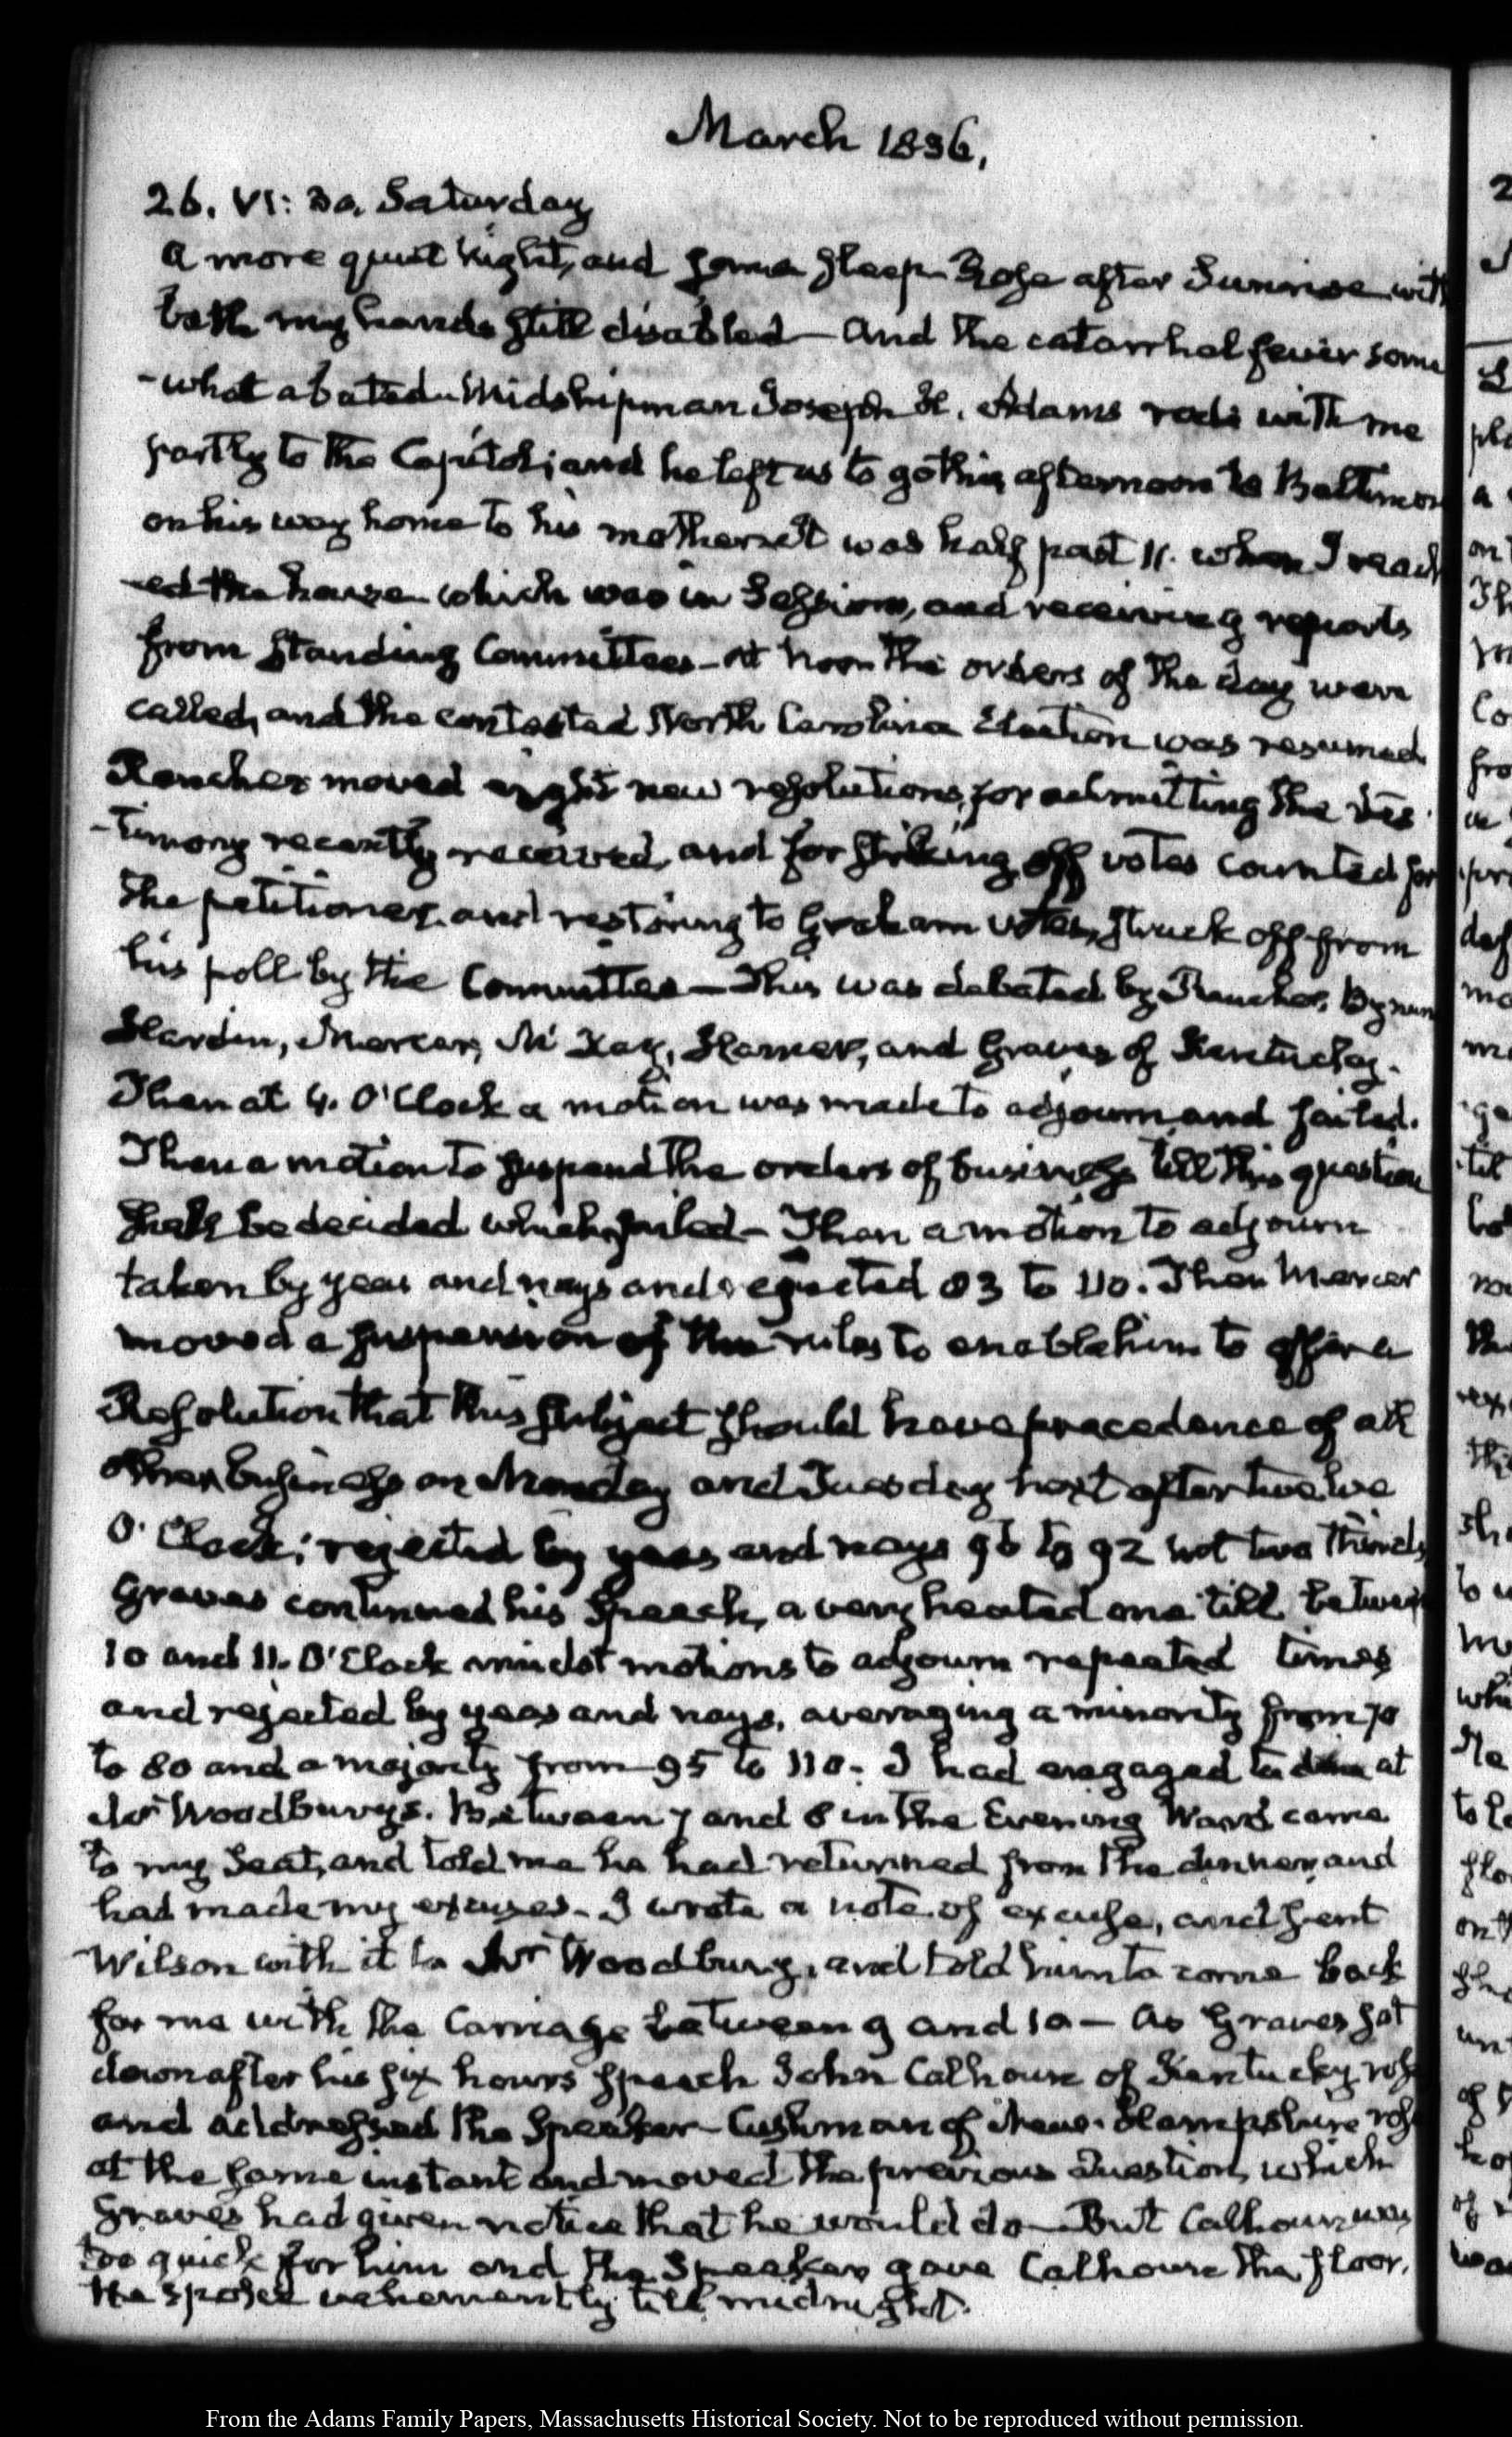 March 1836.
26. VI: 30. Saturday
A more quiet Night, and some sleep. Rose after Sunrise with
both my hands still disabled — And the catarrhal fever some
-what abated. Midshipman Joseph H. Adams rode with me
partly to the Capitol; and he left us to go this afternoon to Baltimore
on his way home to his mother. It was half past 11. when I reach
-ed the house which was in Session, and receiving reports
from standing Committees — At Noon the orders of the day were
called, and the contested North Carolina Election was resumed
Rencher moved eight new resolutions, for admitting the tes
-timony recently received, and for striking off votes counted for
the petitioner and restoring to Graham votes, struck off from
his poll by the Committee — This was debated by Rencher, Bynum
Hardin, Mercer, McKay, Hamer, and Graves of Kentucky.
Then at 4. O'Clock a motion was made to adjourn, and failed.
Then a motion to suspend the orders of business till this question
shall be decided which failed — Then a motion to adjourn
taken by yeas and nays and rejected 83 to 110. Then Mercer
moved a suspension of the rules to enable him to offer a
Resolution that this subject should have precedence of all
other business on Monday and Tuesday next after twelve
O'Clock; rejected by yeas and nays 96 to 92 not two thirds
Graves continued his Speech, a very heated one till between
10 and 11. O'Clock midst motions to adjourn repeated times
and rejected by yeas and nays, averaging a minority from 70
to 80 and a majority from 95 to 110. I had engaged to dine at
Mr Woodbury's. Between 7 and 8 in the Evening Ward came
to my Seat, and told me he had returned from the dinner, and
had made my excuses. I wrote a note of excuse, and sent
Wilson with it to Mr Woodbury, and told him to come back
for me with the Carriage between 9 and 10 — As Graves sat
down after his six hours speech John Calhoun of Kentucky rose
and addressed the Speaker — Cushman of New-Hampshire rose
at the same instant and moved the previous Question, which
Graves had given notice that he would do — But Calhoun was
too quick for him and the Speaker gave Calhoun the floor.
He spoke vehemently till midnight.
From the Adams Family Papers, Massachusetts Historical Society. Not to be reproduced without permission.